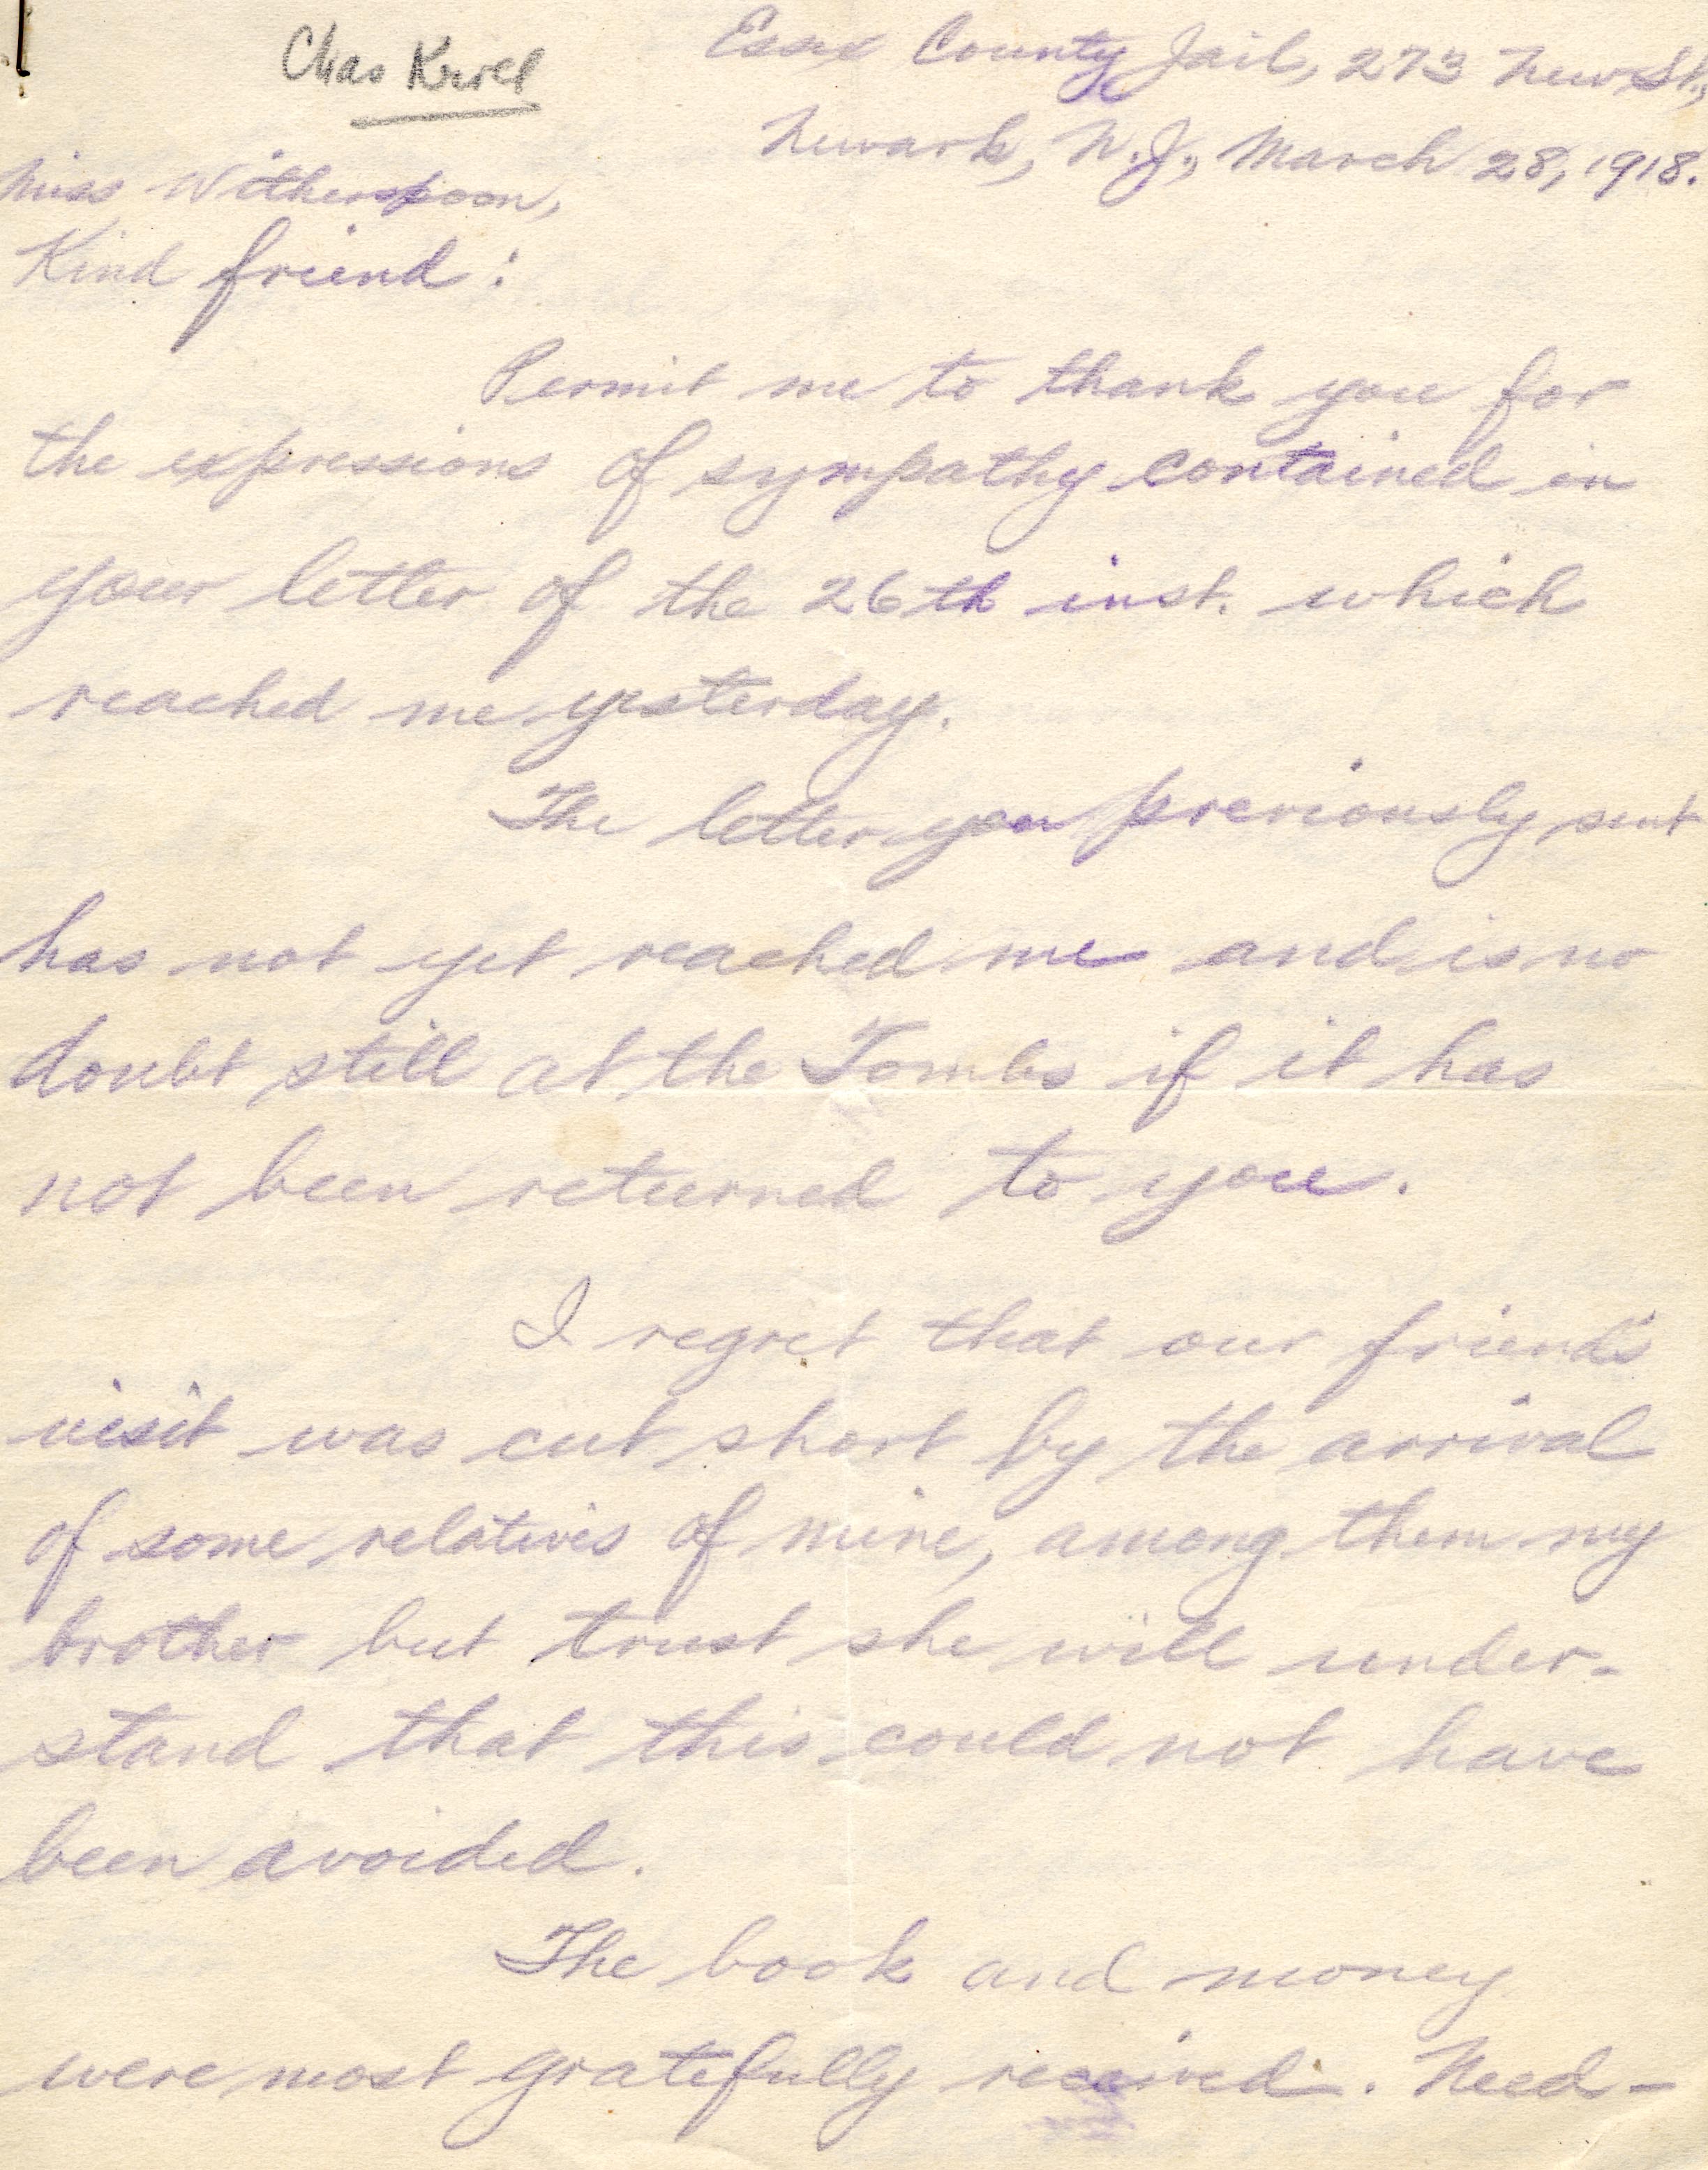 Chas
Essex County Jail, 273 New St.,
Newark, N.J., March 28, 1918.
Miss Witherspoon,
Kind friend:
Permit me to thank you for
the expressions of sympathy contained in
your letter of the 26th inst. which
reached me yesterday.
The letter you previously sent
has not yet reached me and is no
doubt still at the Tombs if it has
not been returned to you.
I regret that our friend's
visit was cut short by the arrival
of some relatives of mine, among them my
brother but trust she will under-
stand that this could not have
been avoided.
The book and money
were most gratefully received. Need-